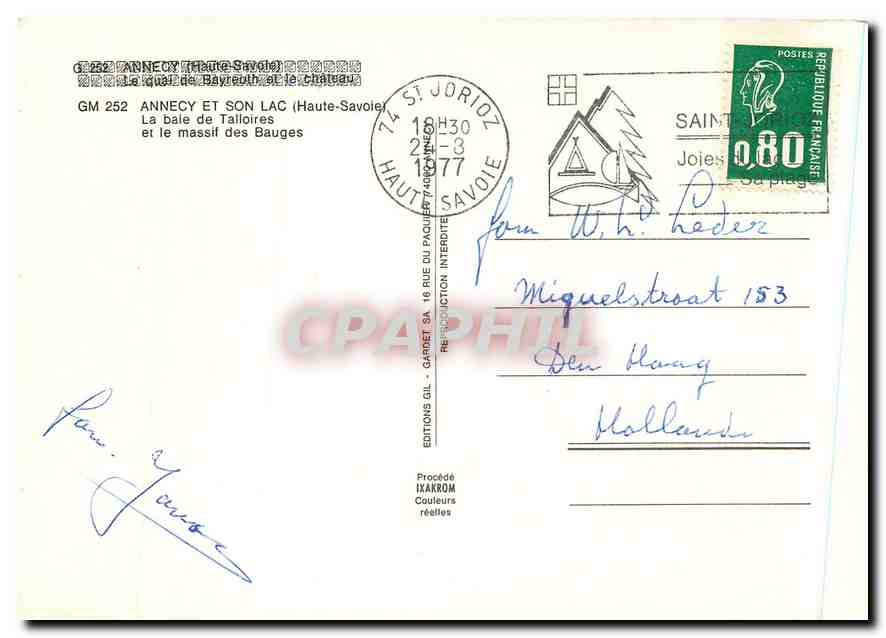 G 252 ANNECY (Haute-Savoie)
Le quai de Bayreuth et le château
GM 252 ANNECY ET SON LAC (Haute-Savoie)
La baie de Talloires
et le massif des Bauges
74 ST JORIOZ
18H30
24-8
1977
HAUTE SAVOIE
POSTES
REPUBLIQUE FRANÇAISE
0,80
SAINT-JORIOZ
Joies du
Sa plage
Fam W. L. Leder
Miguelstraat 153
Den Haag
Holland
Fam.
EDITIONS GIL - GARDET SA. 16 RUE DU PAQUIER 74000 ANNECY
REPRODUCTION INTERDITE
Procédé
IXAKROM
Couleurs
réelles
CPAPHIL